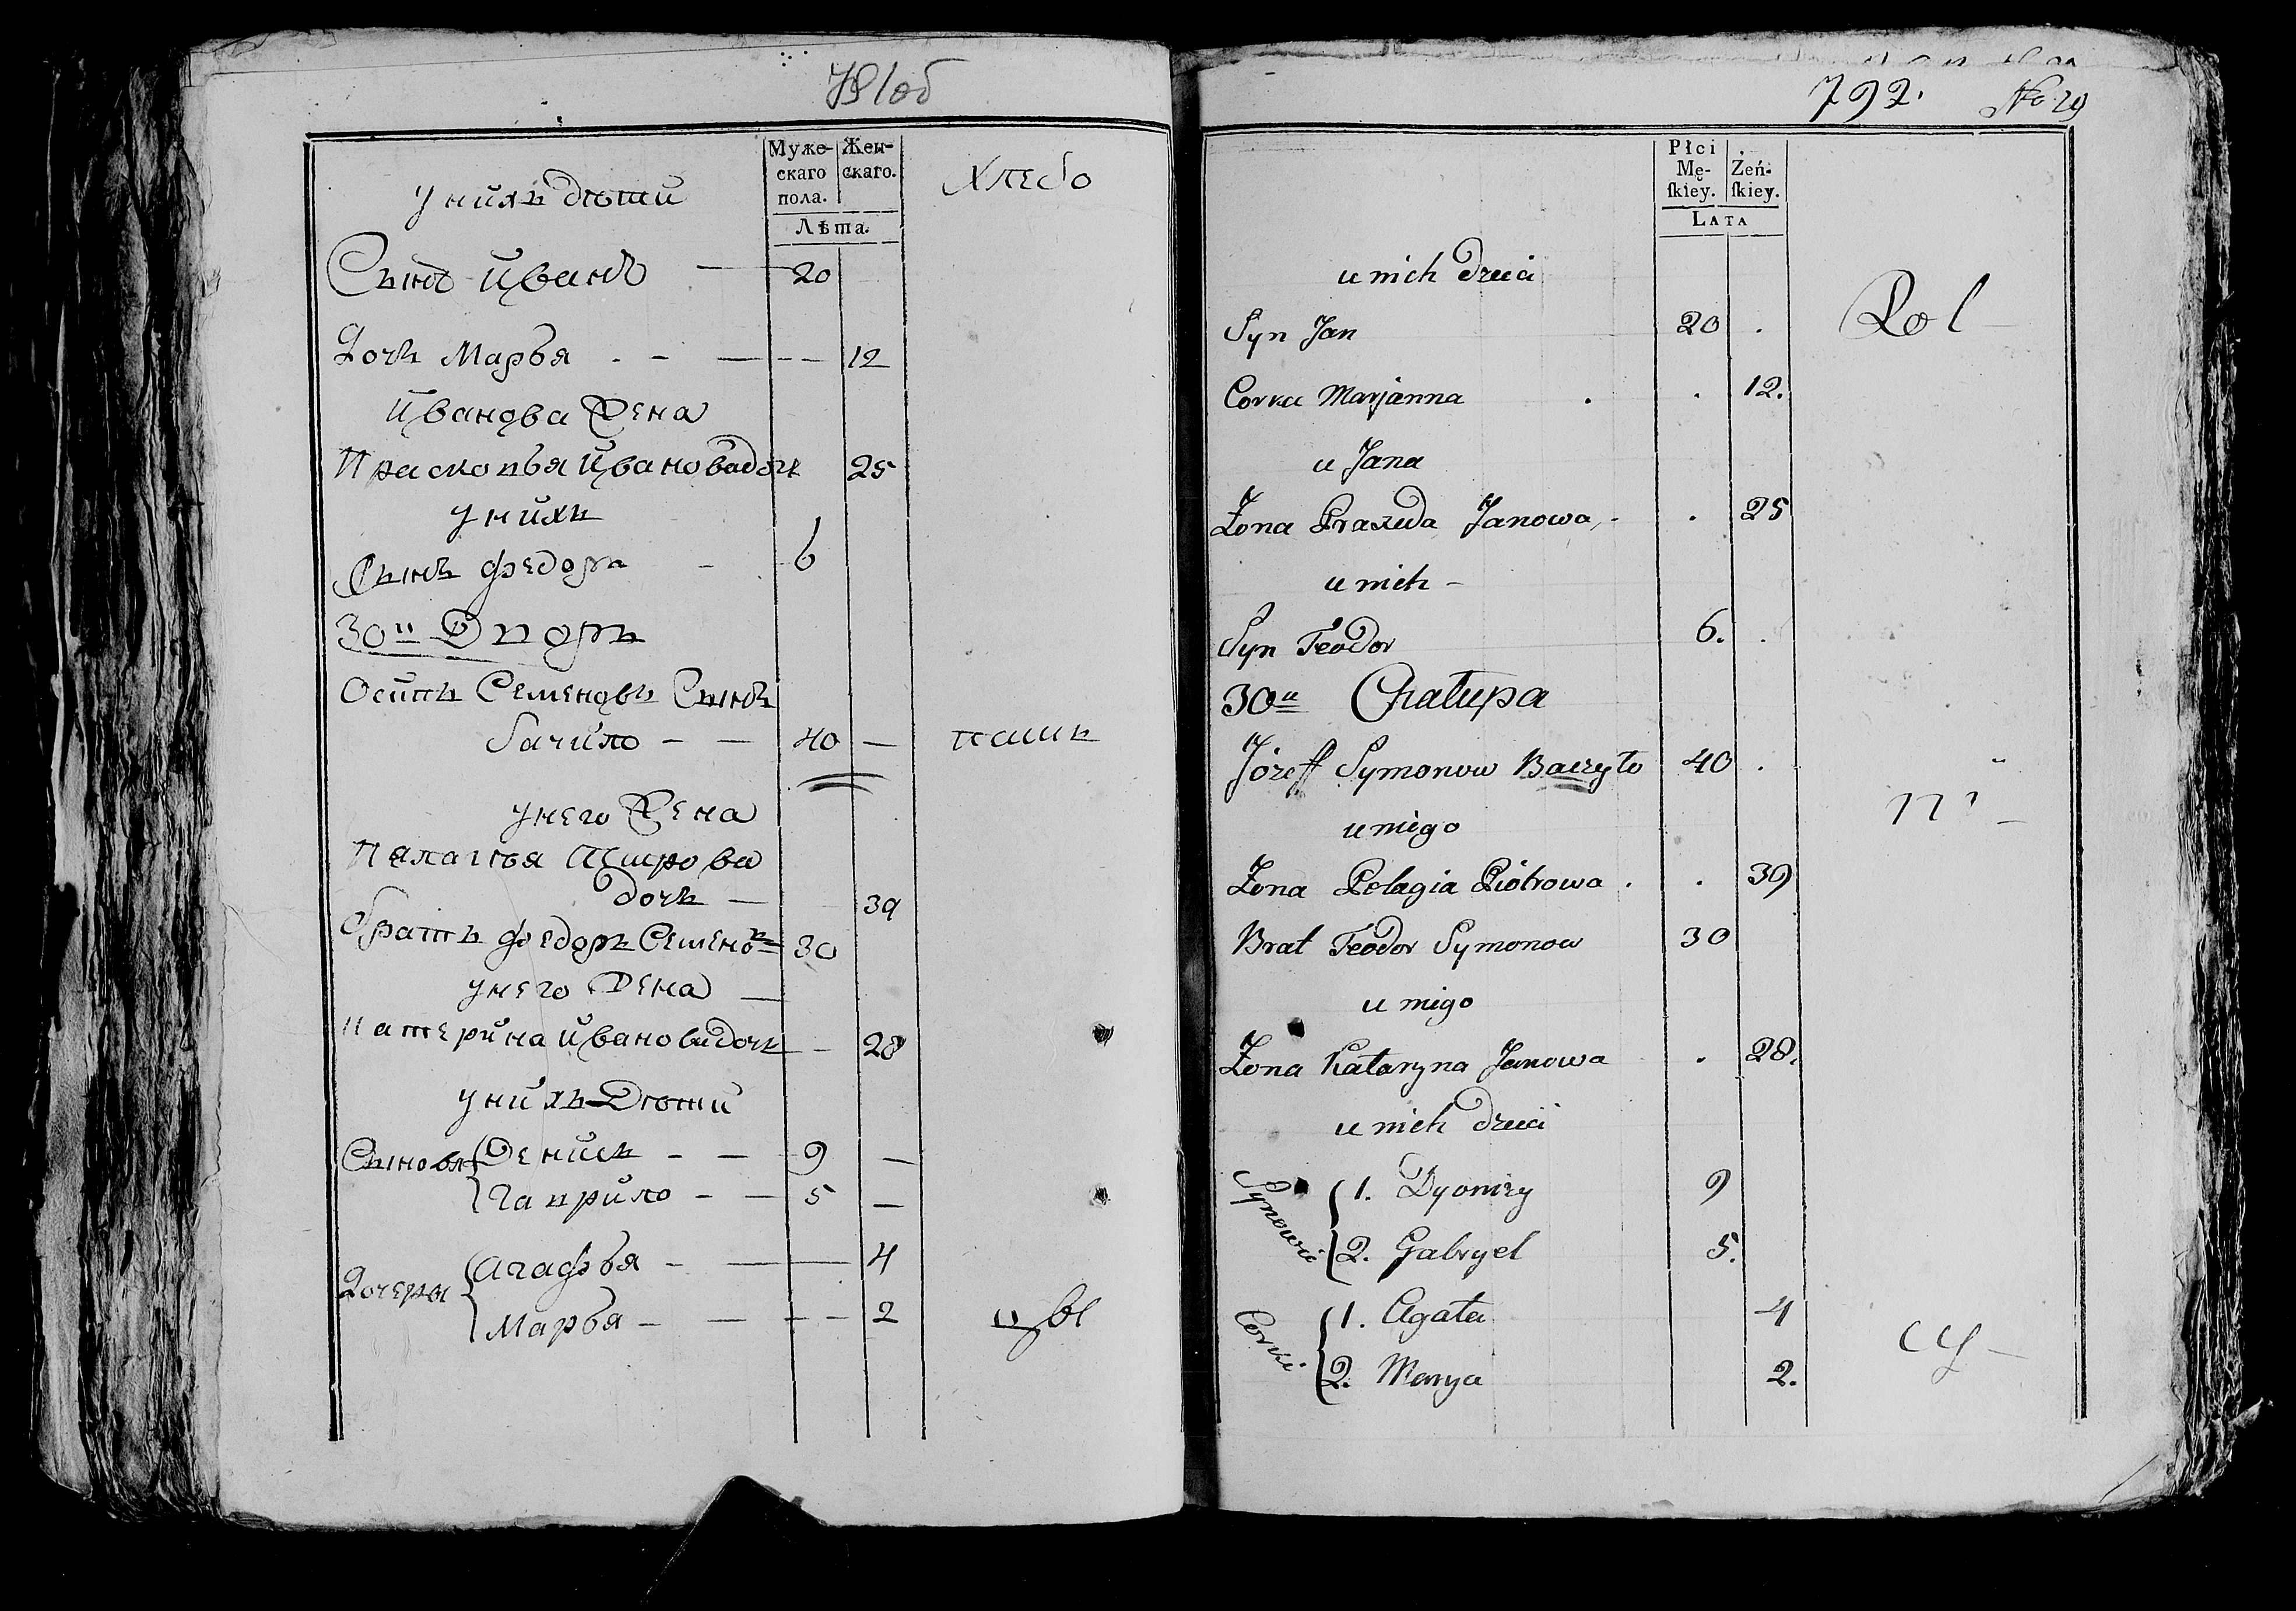 Муже-
скаго
пола.
Жен-
скаго.
Лѣта.
Хлебо
у нихъ дѣти
Сынъ Иванъ — 20
Дочь Марья — 12
Иванова Жена
Прасковья Иванова дочь 25
у нихъ
Сынъ Федоръ - 6
30й Дворъ
Осипъ Семеновъ Сынъ
Бачило — 40 — паши
у него Жена
Палагея Петрова
дочь — 39
братъ Федоръ Семеновъ 30
у него Жена —
Катерина Иванова дочь — 28
у нихъ Дѣти
Сыновья { Денисъ - — 9 —
Гаврило - — 5 —
Дочери { Агафья - — 4
Марья - — 2 цы
792. No 29
Płci
Mę-
ſkiey.
Żeń-
ſkiey.
LATA
u nich dzieci
Syn Jan 20 . Rol
Corka Marjanna . . 12.
u Jana
Zona Praxeda Janowa . 25
u nich -
Syn Teodor 6. .
30a Chałupa
Józeff Symonow Baczyło 40 .
u niego ni
Zona Pelagia Piotrowa . . 39
Brat Teodor Symonow 30
u niego
Zona Kataryna Janowa . 28.
u nich dzieci
Synowie { 1. Dyonizy 9
2. Gabryel 5.
Corki { 1. Agata 4
2. Marya 2. cy